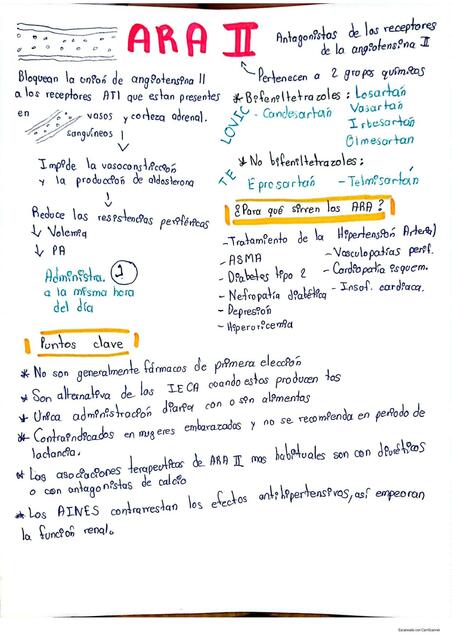 ARA II
Antagonistas de los receptores
de la angiotensina II
Bloquean la unión de angiotensina II
a los receptores AT1 que estan presentes
en vasos y corteza adrenal.
sanguíneos
Impide la vasoconstricción
y la producción de aldosterona
Reduce las resistencias periféricas
↓ Volemia
↓ PA
Administra. 1
a la misma hora
del día
Pertenecen a 2 grupos químicos
* Bifeniltetrazoles : Losartán
- Candesartán Vasartán
Irbesartán
Olmesartán
LOVIC
* No bifeniltetrazoles :
TE
Eprosartán - Telmisartán
¿Para qué sirven los ARA?
- Tratamiento de la Hipertensión Arterial
- ASMA
- Diabetes tipo 2
- Nefropatía diabética
- Depresión
- Hiperuricemia
- Vasculopatías perif.
- Cardiopatía isquem.
- Insuf. cardiaca.
Puntos clave
* No son generalmente fármacos de primera elección
* Son altenativa de los IECA cuando estos producen tos
* Unica administración diaria con o sin alimentos
* Contraindicados en mujeres embarazadas y no se recomienda en periodo de
lactancia.
* Las asociaciones terapeuticas de ARA II mas habituales son con diuréticos
o con antagonistas de calcio
* Los AINES contrarrestan los efectos antihipertensivos, así empeoran
la función renal.
Escaneado con CamScanner